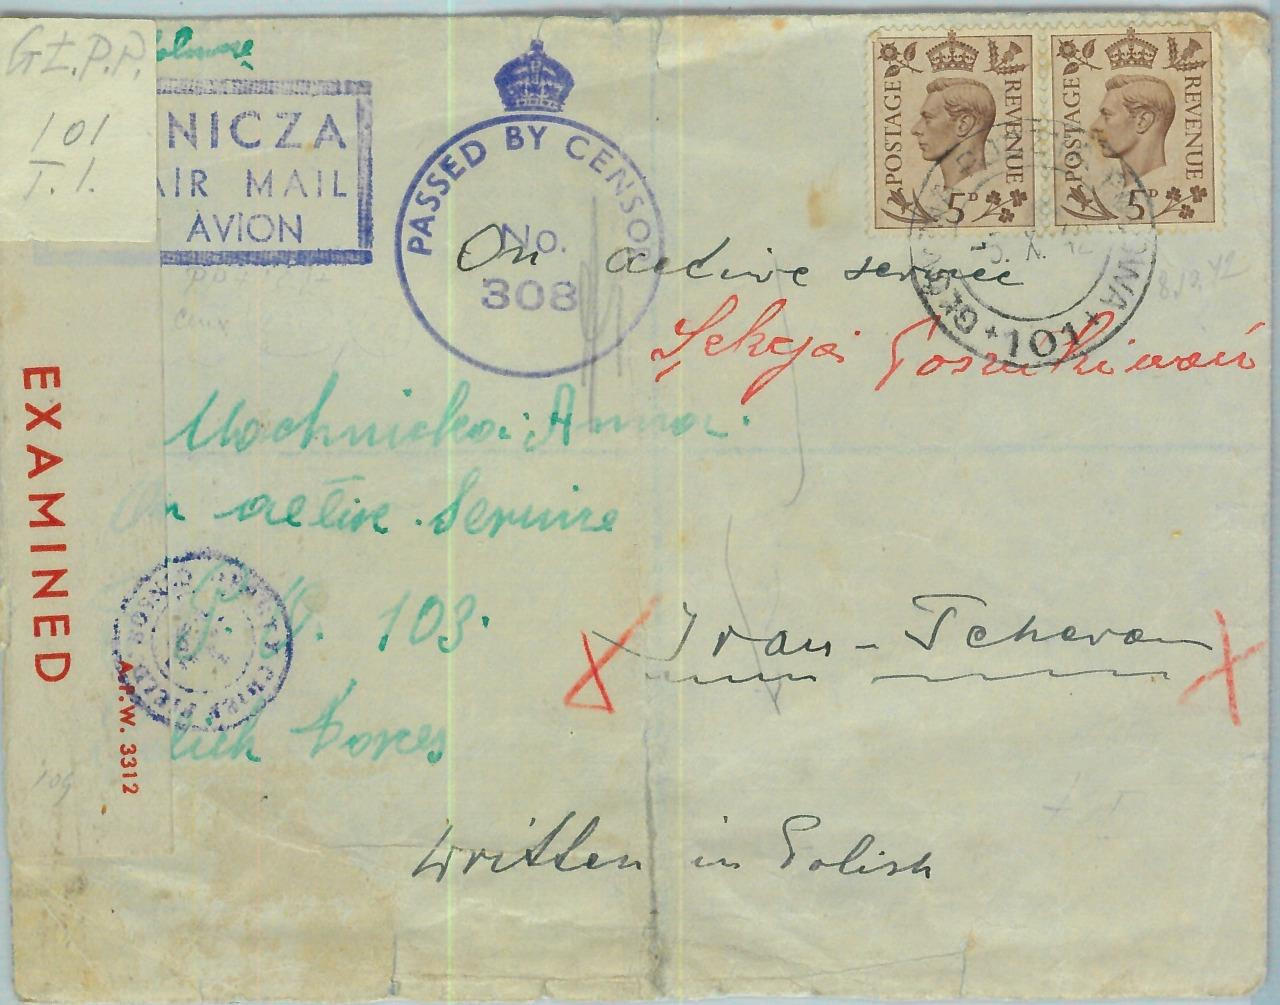 Gł.P.P.
101
T.1.
NICZA
AIR MAIL
AVION
PASSED BY CENSOR
No.
308
POSTAGE REVENUE
5D
POSTAGE REVENUE
5D
On active service
8.10.42
+ 101 +
Sekcja Poszukiwań
EXAMINED
Machnicka Anna.
On active Service
P. 103.
Iran - Teheran
Forces
A.F.W. 3312
109
written in Polish